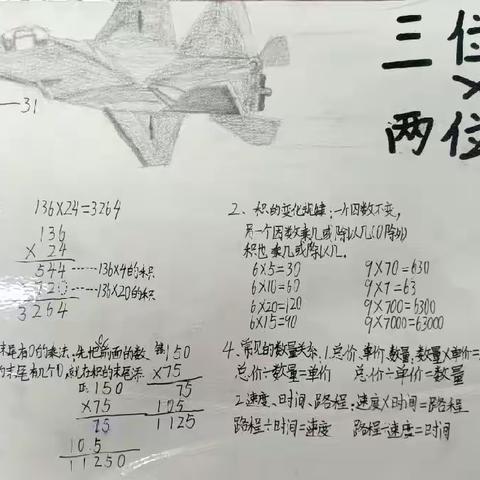 三位
×
两位
—31
136×24=3264
136
× 24
544 ……136×4的积
720 ……136×20的积
3264
末尾有0的乘法:先把前面的数
末尾有几个0,就在积的末尾添
错:150
×75
75
105
1125
正:150
×75
75
10.5
11250
2、积的变化规律:一个因数不变,
另一个因数乘几或除以几(0除外)
积也乘几或除以几。
6×5=30 9×70=630
6×10=60 9×7=63
6×20=120 9×700=6300
6×15=90 9×7000=63000
4、常见的数量关系:1.总价、单价、数量:数量×单价=
总价÷数量=单价 总价÷单价=数量
2.速度、时间、路程:速度×时间=路程
路程÷时间=速度 路程÷速度=时间